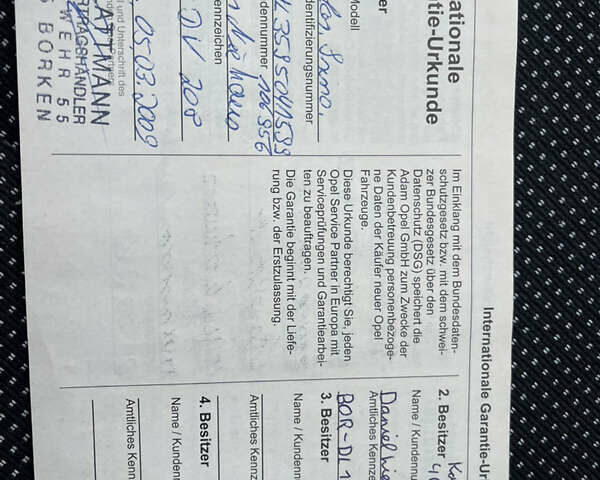 nationale
tie-Urkunde
er
Modell
dentifizierungsnummer
dennummer
Kennzeichen
DIV 200
05.03.2009
l und Unterschrift des
ATTMANN
TRAGSHÄNDLER
WEHR 55
BORKEN
Im Einklang mit dem Bundesdaten-
schutzgesetz bzw. mit dem schwei-
zer Bundesgesetz über den
Datenschutz (DSG) speichert die
Adam Opel GmbH zum Zwecke der
Kundenbetreuung personenbezoge-
ne Daten der Käufer neuer Opel
Fahrzeuge.
Diese Urkunde berechtigt Sie, jeden
Opel Service Partner in Europa mit
Serviceprüfungen und Garantiearbei-
ten zu beauftragen.
Die Garantie beginnt mit der Liefe-
rung bzw. der Erstzulassung.
Internationale Garantie-Ur
2. Besitzer
Name / Kundennu
Amtliches Kennze
BOR-DL 1
3. Besitzer
Name / Kundennu
Amtliches Kennz
4. Besitzer
Name / Kundennu
Amtliches Kennz